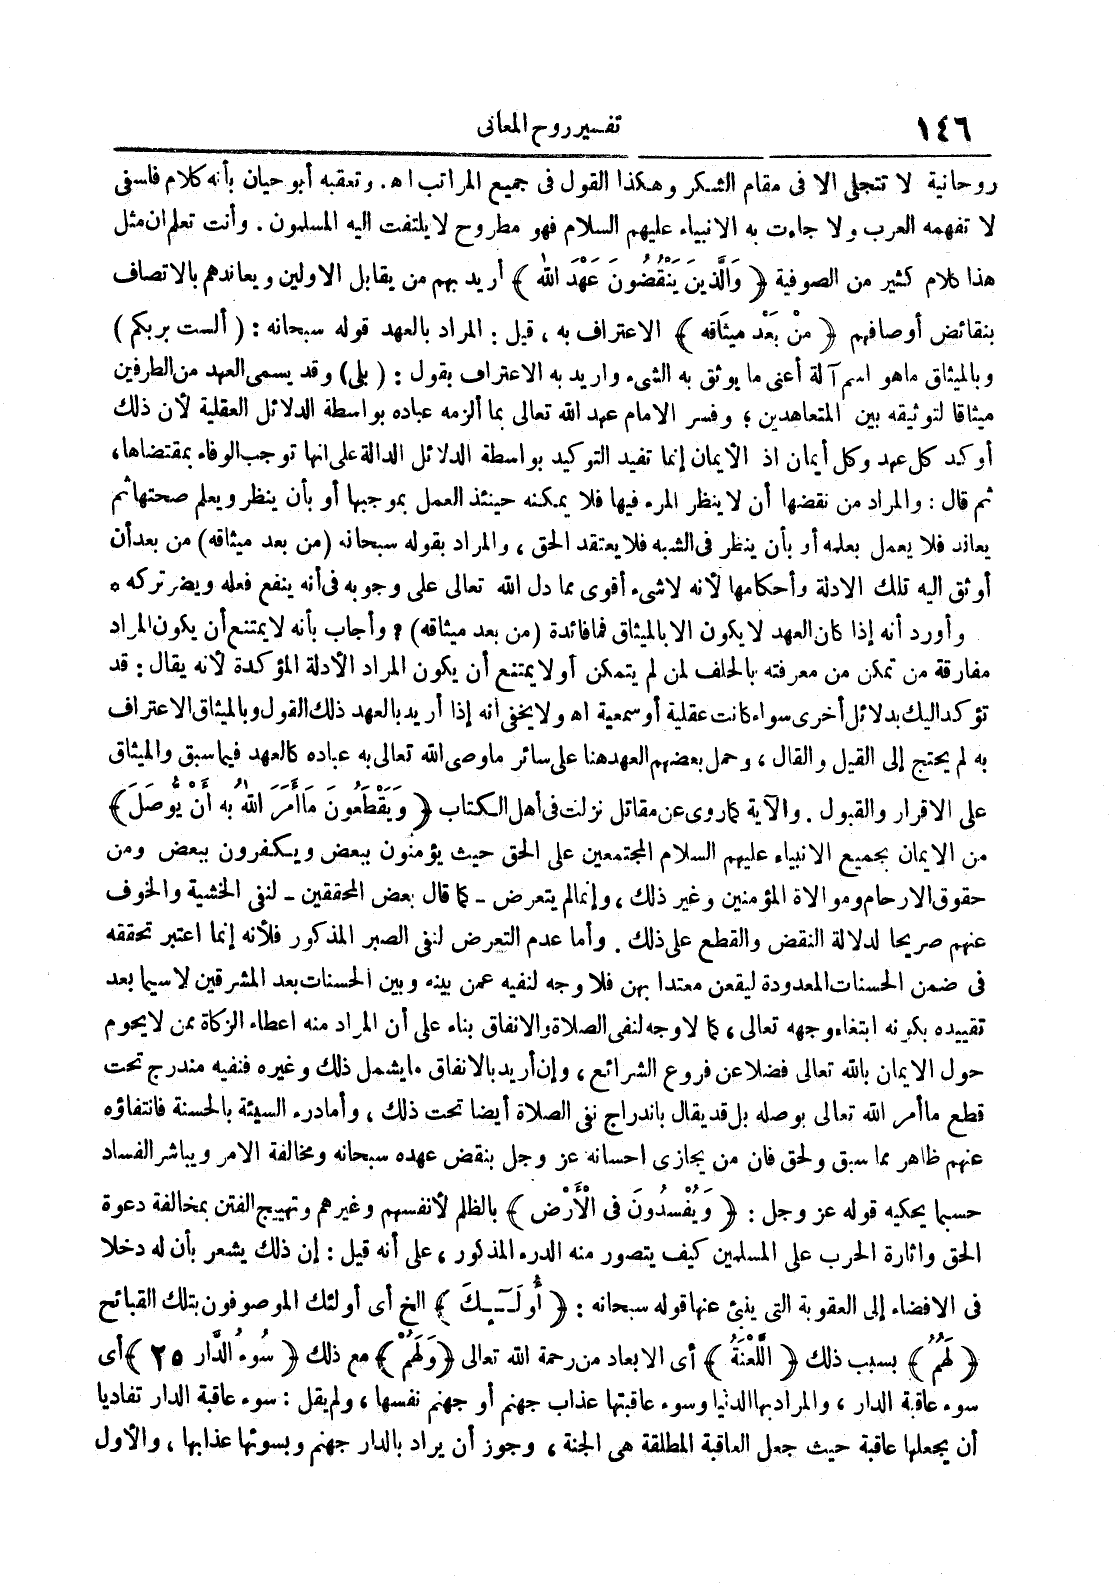 ١٤٦
تفسير روح المعانى
روحانية لا تتجلى الا فى مقام الشكر وهكذا القول فى جميع المراتب اه. وتعقبه أبو حيان بأنه كلام فلسفى
لا تفهمه العرب ولا جاءت به الانبياء عليهم السلام فهو مطروح لا يلتفت اليه المسلمون . وأنت تعلم ان مثل
هذا كلام كثير من الصوفية ﴿ وَالَّذِينَ يَنْقُضُونَ عَهْدَ اللّٰه ﴾ أريد بهم من يقابل الاولين ويعاندهم بالاتصاف
بنقائض أوصافهم ﴿ مِنْ بَعْدِ ميثَاقه ﴾ الاعتراف به ، قيل : المراد بالعهد قوله سبحانه : ( ألست بربكم )
وبالميثاق ماهو اسم آلة أعنى ما يوثق به الشىء واريد به الاعتراف بقول : ( بلى ) وقد يسمى العهد من الطرفين
ميثاقا لتوثيقه بين المتعاهدين ؛ وفسر الامام عهد الله تعالى بما ألزمه عباده بواسطة الدلائل العقلية لأن ذلك
أوكد كل عهد وكل أيمان اذ الأيمان إنما تفيد التوكيد بواسطة الدلائل الدالة على انها توجب الوفاء بمقتضاها،
ثم قال : والمراد من نقضها أن لا ينظر المرء فيها فلا يمكنه حينئذ العمل بموجبها أو بأن ينظر ويعلم صحتها ثم
يعاند فلا يعمل بعلمه أو بأن ينظر فى الشبه فلا يعتقد الحق ، والمراد بقوله سبحانه (من بعد ميثاقه) من بعد أن
أوثق اليه تلك الادلة وأحكامها لأنه لا شىء أقوى مما دل الله تعالى على وجوبه فى أنه ينفع فعله ويضر تركه ه
وأورد أنه إذا كان العهد لا يكون الا بالميثاق فما فائدة (من بعد ميثاقه) ؟ وأجاب بأنه لا يمتنع أن يكون المراد
مفارقة من تمكن من معرفته بالحلف لمن لم يتمكن أو لا يمتنع أن يكون المراد الأدلة المؤكدة لأنه يقال : قد
تؤكد اليك بدلائل أخرى سواء كانت عقلية أو سمعية اه ولا يخفى انه إذا أريد بالعهد ذلك القول وبالميثاق الاعتراف
به لم يحتج إلى القيل والقال ، وحمل بعضهم العهد هنا على سائر ما وصى الله تعالى به عباده كالعهد فيما سبق والميثاق
على الاقرار والقبول . والآية كما روى عن مقاتل نزلت فى أهل الكتاب ﴿ وَيَقْطَعُونَ مَا أَمَرَ اللّٰهُ به أَنْ يُّوصَلَ ﴾
من الايمان بجميع الانبياء عليهم السلام المجتمعين على الحق حيث يؤمنون ببعض ويكفرون ببعض ومن
حقوق الارحام وموالاة المؤمنين وغير ذلك ، وإنما لم يتعرض ـ كما قال بعض المحققين ـ لنفى الخشية والخوف
عنهم صريحا لدلالة النقض والقطع على ذلك . وأما عدم التعرض لنفى الصبر المذكور فلأنه إنما اعتبر تحققه
فى ضمن الحسنات المعدودة ليقعن معتدا بهن فلا وجه لنفيه عمن بينه وبين الحسنات بعد المشرقين لا سيما بعد
تقييده بكونه ابتغاء وجهه تعالى ، كما لا وجه لنفى الصلاة والانفاق بناء على أن المراد منه اعطاء الزكاة ممن لا يحوم
حول الايمان بالله تعالى فضلا عن فروع الشرائع ، وإن أريد بالانفاق ما يشمل ذلك وغيره فنفيه مندرج تحت
قطع ما أمر الله تعالى بوصله بل قد يقال باندراج نفى الصلاة أيضا تحت ذلك ، وأما درء السيئة بالحسنة فانتفاؤه
عنهم ظاهر مما سبق ولحق فان من يجازى احسانه عز وجل بنقض عهده سبحانه ومخالفة الامر ويباشر الفساد
حسبما يحكيه قوله عز وجل : ﴿ وَيُفْسدُونَ فى الْأَرْض ﴾ بالظلم لأنفسهم وغيرهم وتهييج الفتن بمخالفة دعوة
الحق واثارة الحرب على المسلمين كيف يتصور منه الدرء المذكور ، على أنه قيل : إن ذلك يشعر بأن له دخلا
فى الافضاء إلى العقوبة التى ينبئ عنها قوله سبحانه : ﴿ أُولَـٰٓئِكَ ﴾ الخ أى أولئك الموصوفون بتلك القبائح
﴿ لَهُمُ ﴾ بسبب ذلك ﴿ اللَّعْنَةُ ﴾ أى الابعاد من رحمة الله تعالى ﴿ وَلَهُمْ ﴾ مع ذلك ﴿ سُوءُ الدَّار ٢٥ ﴾ أى
سوء عاقبة الدار ، والمراد بها الدنيا وسوء عاقبتها عذاب جهنم أو جهنم نفسها ، ولم يقل : سوء عاقبة الدار تفاديا
أن يجعلها عاقبة حيث جعل العاقبة المطلقة هى الجنة ، وجوز أن يراد بالدار جهنم وبسوئها عذابها ، والأول